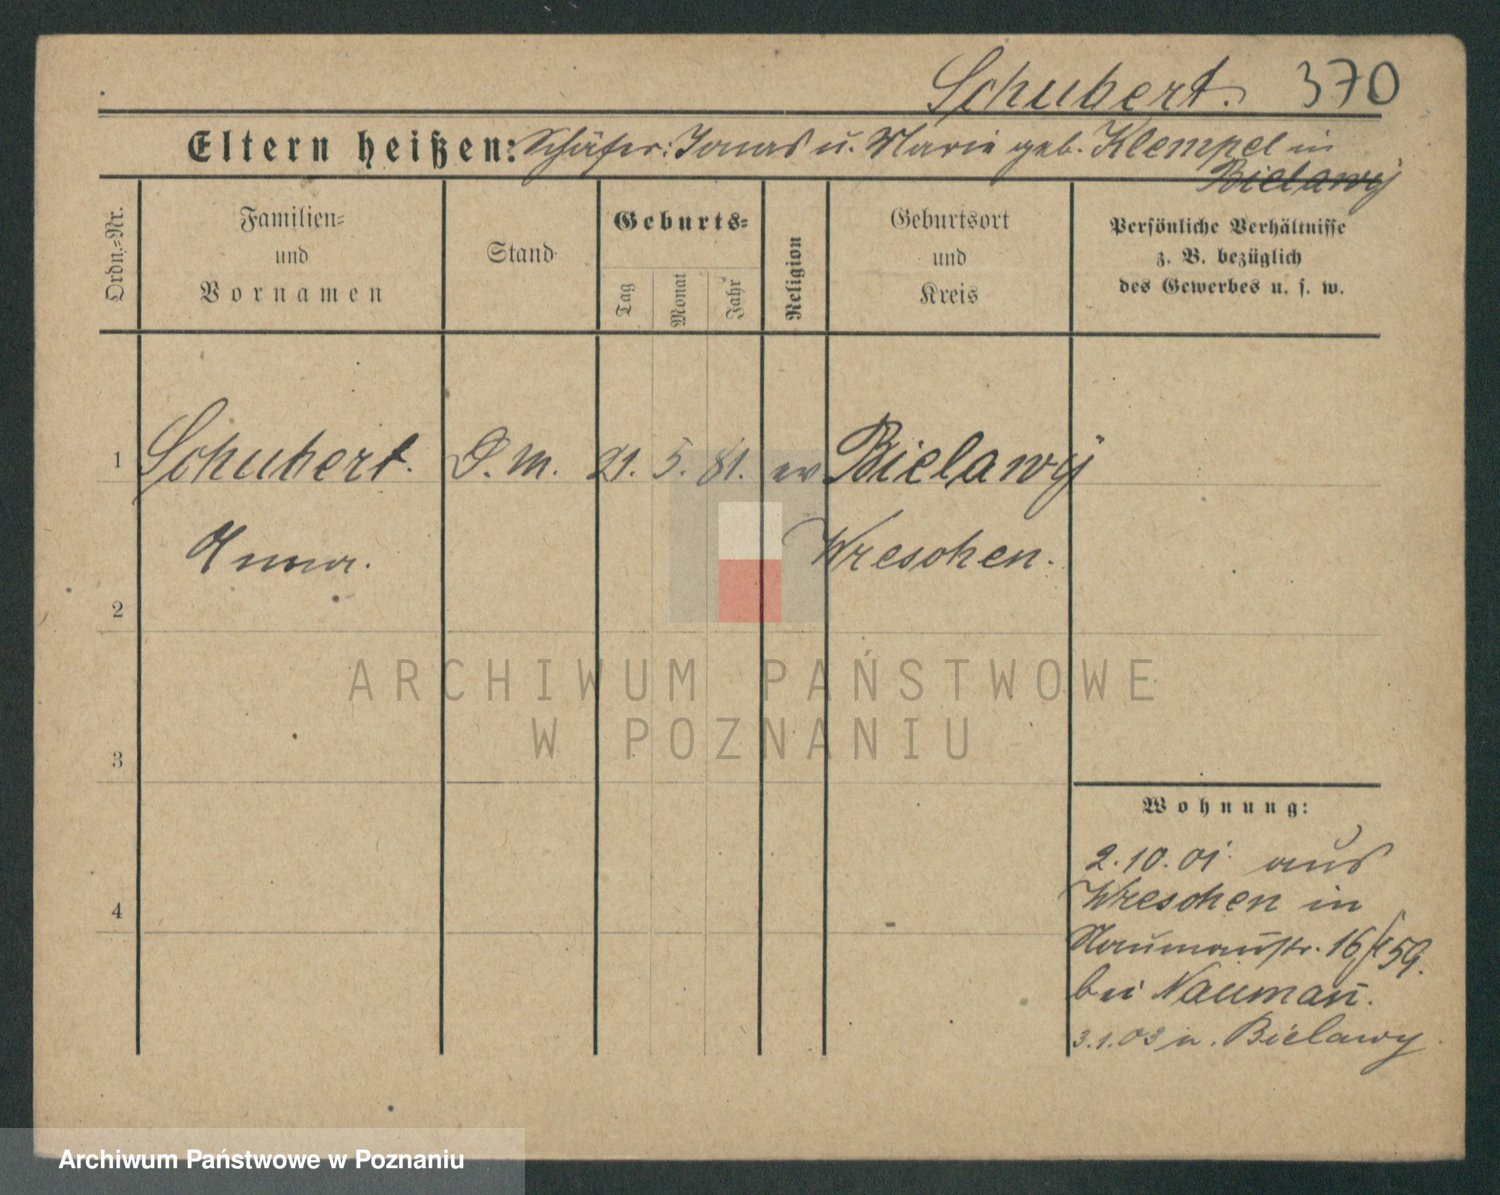 Schubert. 370
Eltern heißen: Schäfer: Jonas u. Marie geb. Klempel in
Bielawy
Ordn.=Nr.
Familien=
und
Vornamen
Stand
Geburts=
Tag
Monat
Jahr
Religion
Geburtsort
und
Kreis
Persönliche Verhältnisse
z. B. bezüglich
des Gewerbes u. s. w.
1 Schubert. D. M. 21. 5. 81. ev Bielawy
Anna. Wreschen.
2
3
4
ARCHIWUM PAŃSTWOWE
W POZNANIU
Wohnung:
2.10.01 aus
Wreschen in
Naumannstr. 16 59.
bei Naumañ.
3.1.03 n. Bielawy
Archiwum Państwowe w Poznaniu